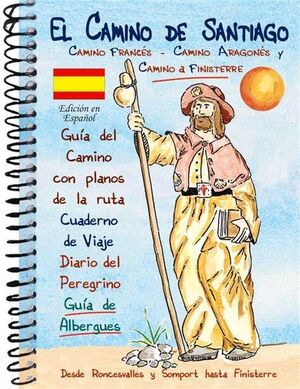 El Camino de Santiago
Camino Francés - Camino Aragonés y
Camino a Finisterre
Edición en
Español
Guía del
Camino
con planos
de la ruta
Cuaderno
de Viaje
Diario del
Peregrino
Guía de
Albergues
Desde Roncesvalles y Somport hasta Finisterre